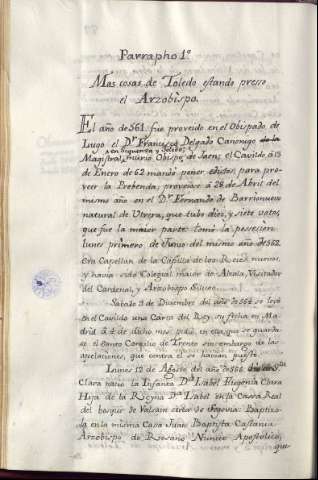 Parrapho 1º
Mas cosas de Toledo estando presso
el Arzobispo.
El año de 561. fue proveido en el Obispado de
Lugo el Dr Francisco Delgado Canonigo de la
en Siguenza y Toledo
Magistral, murio Obispo de Jaen; el Cavildo á 15
de Enero de 62 mandó poner edictos, para pro-
veer la Prebenda, proveióse á 28 de Abril del
mismo año en el Dr Fernando de Barrionuevo
natural de Utrera, que tubo diez, y siete votos,
que fue la maior parte tomó la posesión
lunes primero de Junio del mismo año de 562.
Era Capellan de la Capilla de los Reies nuevos,
y havia sido Colegial maior de Alcala, Visitador
del Cardenal, y Arzobispo Siliceo.
Sabado 9 de Diciembre del año de 564 se leyó
en el Cavildo una Carta del Rey su fecha en Ma-
drid á 4 de dicho mes pedia, en ella, que se guarda-
se el Santo Concilio de Trento sin embargo de las
apelaciones, que contra él se havian puesto.
Lunes 12 de Agosto del año de 566. dia de Sta
Clara nacio la Infanta Dª Isabel Eugenia Clara
Hija de la Reyna Dª Isabel en la Cassa Real
del bosque de Valsain cerca de Segovia: Baptizo-
la en la misma Casa Juan Baptista Castania
Arzobispo de Rosano Nuncio Apostolico,
que